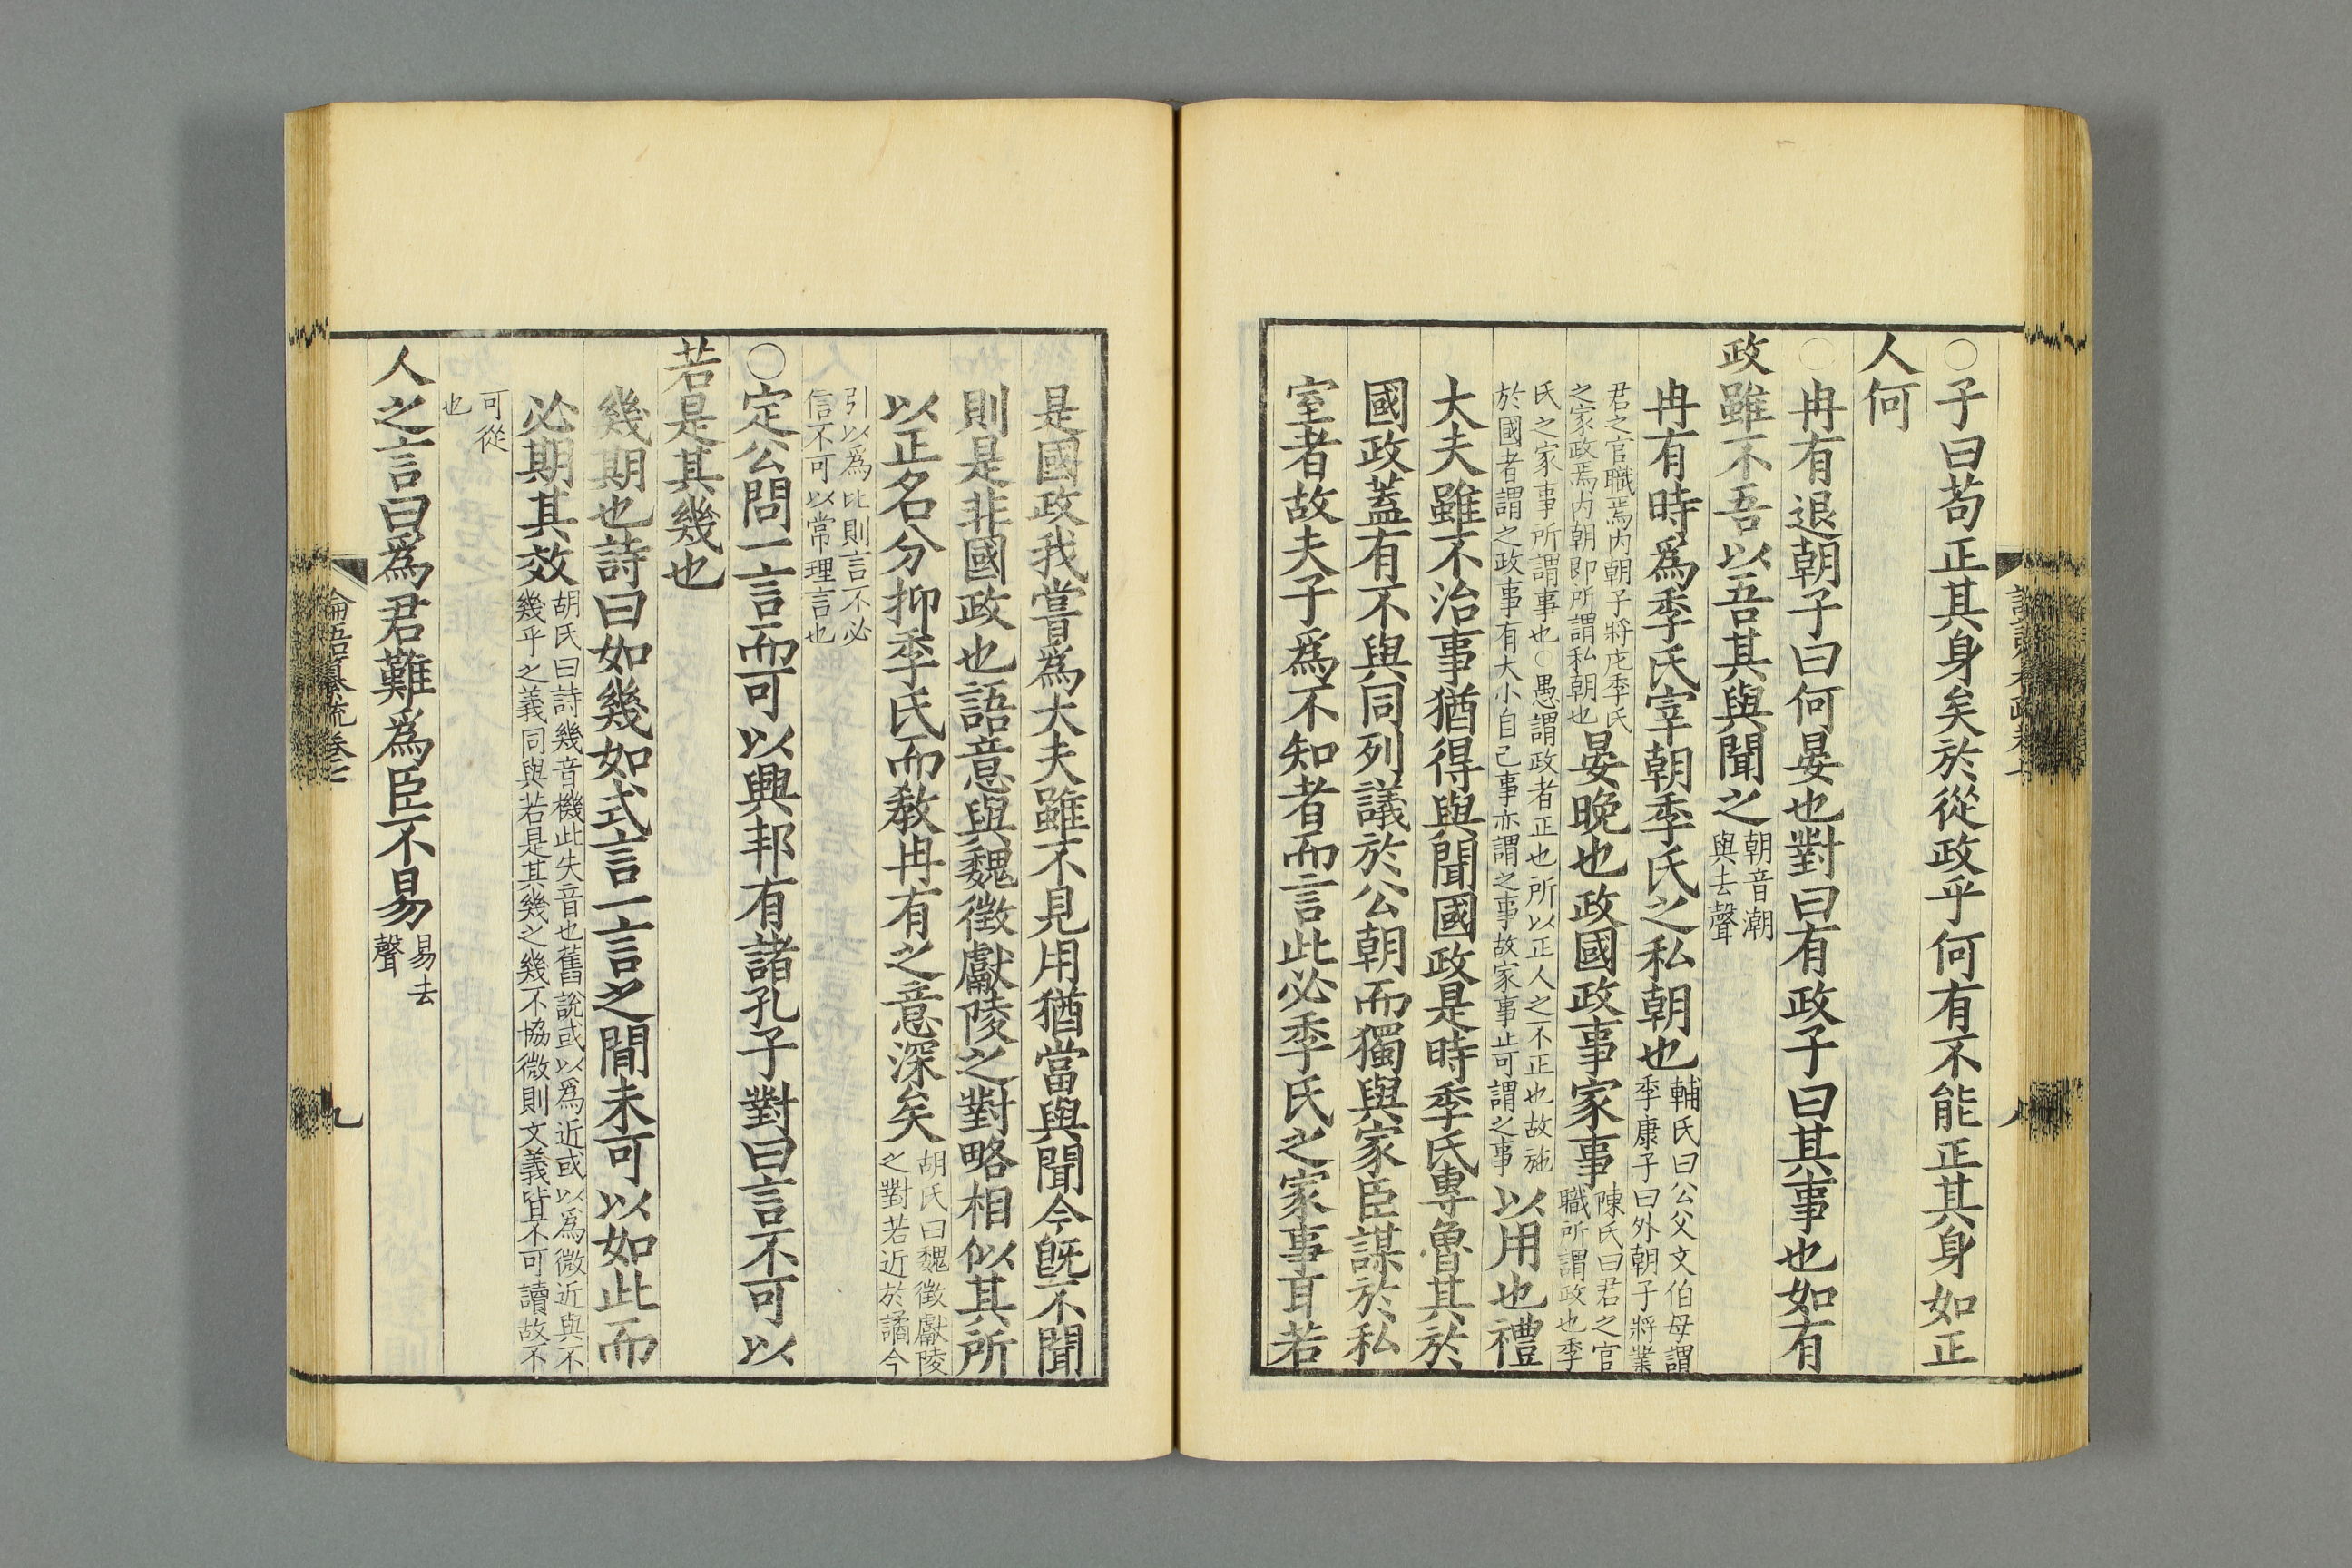 ○子曰苟正其身矣於從政乎何有不能正其身如正
人何
○冉有退朝子曰何晏也對曰有政子曰其事也如有
政雖不吾以吾其與聞之朝音潮與去聲
冉有時爲季氏宰朝季氏之私朝也輔氏曰公父文伯母謂季康子曰外朝子將業
君之官職焉內朝子將庀季氏之家政焉內朝即所謂私朝也晏晚也政國政事家事陳氏曰君之官職所謂政也季
氏之家事所謂事也○愚謂政者正也所以正人之不正也故施於國者謂之政事有大小自己事亦謂之事故家事止可謂之事以用也禮
大夫雖不治事猶得與聞國政是時季氏專魯其於
國政蓋有不與同列議於公朝而獨與家臣謀於私
室者故夫子爲不知者而言此必季氏之家事耳若
八
是國政我嘗爲大夫雖不見用猶當與聞今旣不聞
則是非國政也語意與魏徵獻陵之對略相似其所
以正名分抑季氏而敎冉有之意深矣胡氏曰魏徵獻陵之對若近於譎今
引以爲比則言不必信不可以常理言也
○定公問一言而可以興邦有諸孔子對曰言不可以
若是其幾也
幾期也詩曰如幾如式言一言之閒未可以如此而
必期其效胡氏曰詩幾音機此失音也舊說或以爲近或以爲微近與不幾乎之義同與若是其幾之幾不協微則文義皆不可讀故不
可從也
人之言曰爲君難爲臣不易易去聲
論語纂疏卷七
九